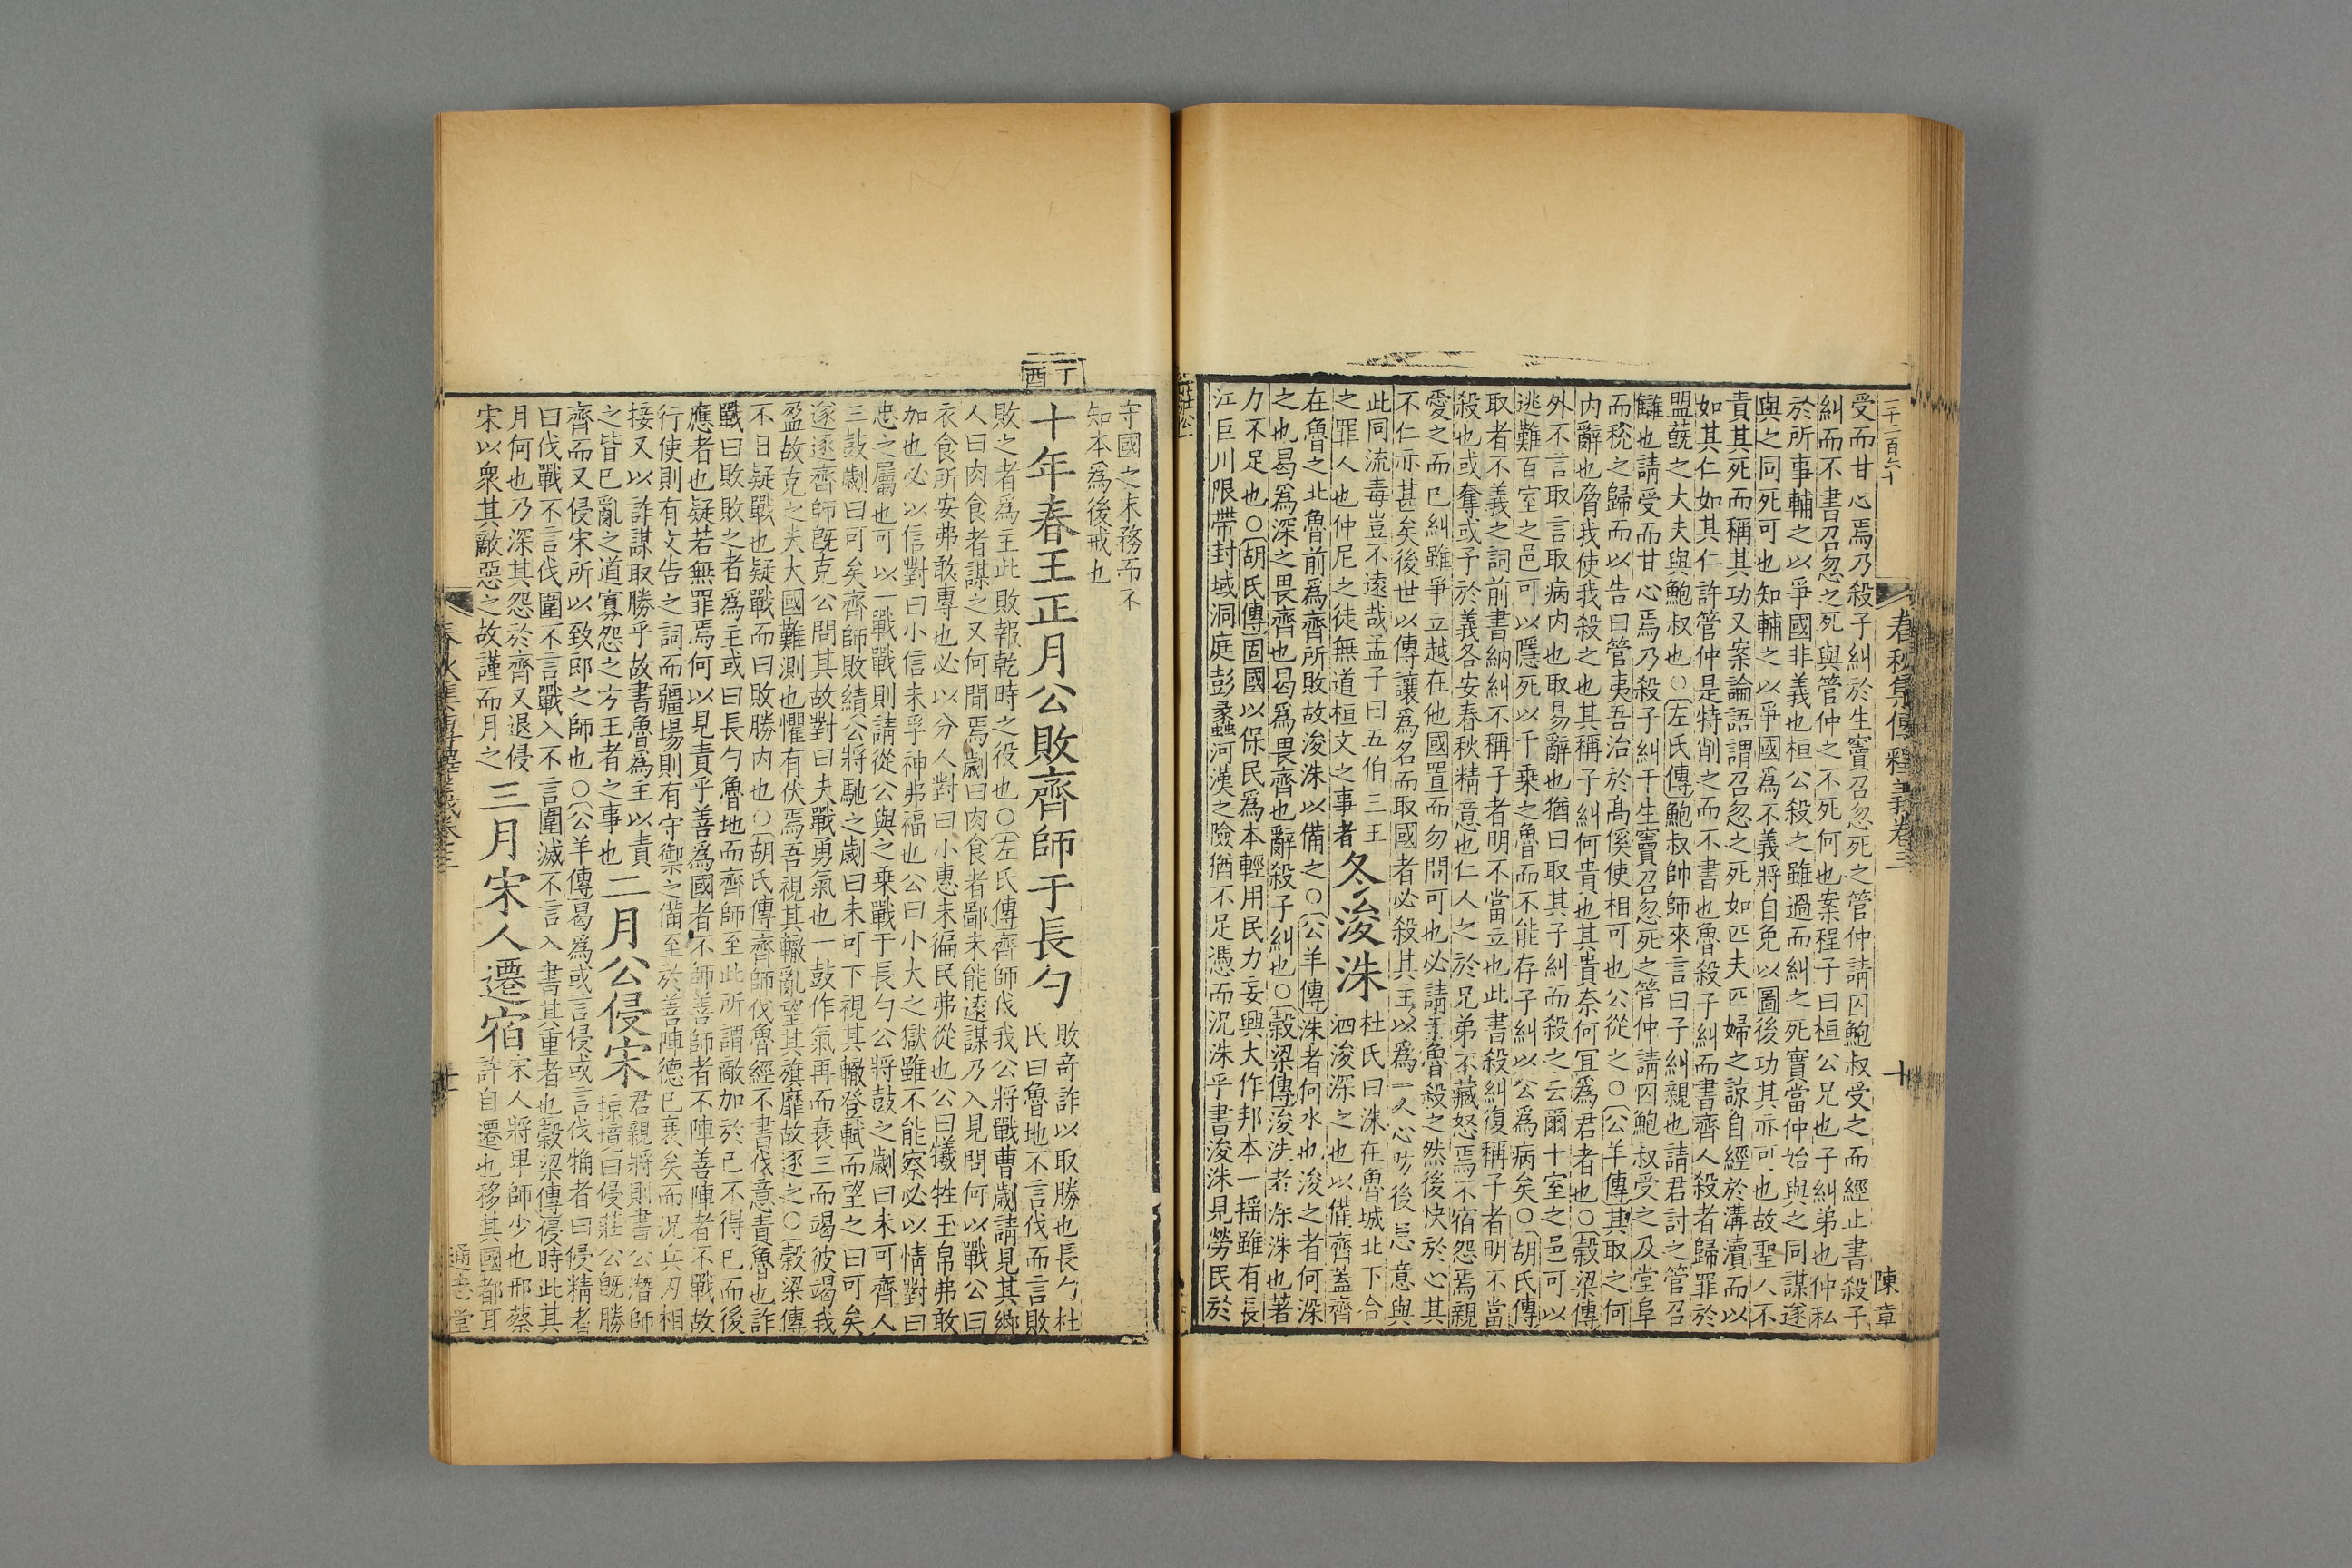 二千二百六十
春秋集傳釋義卷三
十
陳章
受而甘心焉乃殺子糾於生竇召忽死之管仲請囚鮑叔受之而經止書殺子
糾而不書召忽之死與管仲之不死何也案程子曰桓公兄也子糾弟也仲私
於所事輔之以爭國非義也桓公殺之雖過而糾之死實當仲始與之同謀遂
與之同死可也知輔之以爭國爲不義將自免以圖後功其亦可也故聖人不
責其死而稱其功又案論語謂召忽之死如匹夫匹婦之諒自經於溝瀆而以
如其仁如其仁許管仲是特削之而不書也魯殺子糾而書齊人殺者歸罪於
盟蔇之大夫與鮑叔也○左氏傳鮑叔帥師來言曰子糾親也請君討之管召
讎也請受而甘心焉乃殺子糾于生竇召忽死之管仲請囚鮑叔受之及堂阜
而稅之歸而以告曰管夷吾治於高傒使相可也公從之○公羊傳其取之何
內辭也脅我使我殺之也其稱子糾何貴也其貴奈何宜爲君者也○穀梁傳
外不言取言取病內也取易辭也猶曰取其子糾而殺之云爾十室之邑可以
逃難百室之邑可以隱死以千乗之魯而不能存子糾以公爲病矣○胡氏傳
取者不義之詞前書納糾不稱子者明不當立也此書殺糾復稱子者明不當
殺也或奪或予於義各安春秋精意也仁人之於兄弟不藏怒焉不宿怨焉親
愛之而已糾雖爭立越在他國置而勿問可也必請于魯殺之然後快於心其
不仁亦甚矣後世以傳讓爲名而取國者必殺其主以爲一人心防後患意與
此同流毒豈不遠哉孟子曰五伯三王
之罪人也仲尼之徒無道桓文之事者
冬浚洙
杜氏曰洙在魯城北下合
泗浚深之也以備齊蓋齊
在魯之北魯前爲齊所敗故浚洙以備之○公羊傳洙者何水也浚之者何深
之也曷爲深之畏齊也曷爲畏齊也辭殺子糾也○穀梁傳浚洙者深洙也著
力不足也○胡氏傳固國以保民爲本輕用民力妄興大作邦本一揺雖有長
江巨川限帶封域洞庭彭蠡河漢之險猶不足憑而況洙乎書浚洙見勞民於
守國之末務而不
知本爲後戒也
丁酉
十年春王正月公敗齊師于長勺
敗奇詐以取勝也長勺杜
氏曰魯地不言伐而言敗
敗之者爲主此敗報乾時之役也○左氏傳齊師伐我公將戰曹劌請見其鄉
人曰肉食者謀之又何間焉劌曰肉食者鄙未能遠謀乃入見問何以戰公曰
衣食所安弗敢專也必以分人對曰小惠未徧民弗從也公曰犧牲玉帛弗敢
加也必以信對曰小信未孚神弗福也公曰小大之獄雖不能察必以情對曰
忠之屬也可以一戰戰則請從公與之乗戰于長勺公將鼓之劌曰未可齊人
三鼓劌曰可矣齊師敗績公將馳之劌曰未可下視其轍登軾而望之曰可矣
遂逐齊師旣克公問其故對曰夫戰勇氣也一鼓作氣再而衰三而竭彼竭我
盈故克之夫大國難測也懼有伏焉吾視其轍亂望其旗靡故逐之○穀梁傳
不日疑戰也疑戰而曰敗勝內也○胡氏傳齊師伐魯經不書伐意責魯也詐
戰曰敗敗之者爲主或曰長勺魯地而齊師至此所謂敵加於己不得已而後
應者也疑若無罪焉何以見責乎善爲國者不師善師者不陣善陣者不戰故
行使則有文告之詞而疆場則有守禦之備至於善陣德已衰矣而況兵刃相
接又以詐謀取勝乎故書魯爲主以責
之皆已亂之道寡怨之方王者之事也
二月公侵宋
君親將則書公潛師
掠境曰侵莊公旣勝
齊而又侵宋所以致郎之師也○公羊傳曷爲或言侵或言伐觕者曰侵精者
曰伐戰不言伐圍不言戰入不言圍滅不言入書其重者也穀梁傳侵時此其
月何也乃深其怨於齊又退侵
宋以衆其敵惡之故謹而月之
三月宋人遷宿
宋人將卑師少也邢蔡
許自遷也移其國都耳
春秋集傳釋義卷三
十一
通志堂